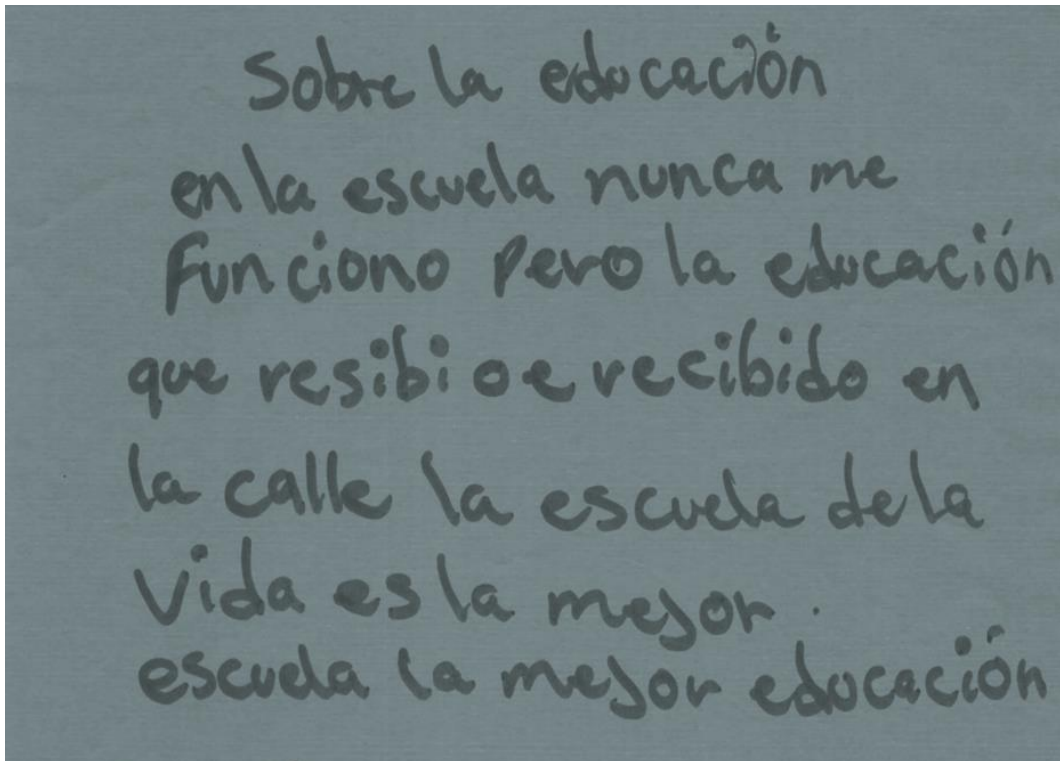 Sobre la educación
en la escuela nunca me
funciono pero la educación
que resibi o e recibido en
la calle la escuela de la
vida es la mejor.
escuela la mejor educación